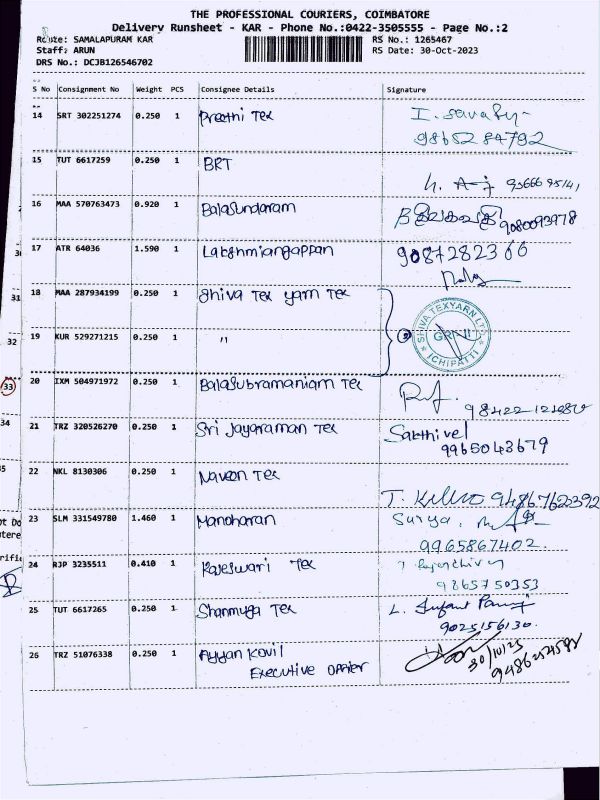 THE PROFESSIONAL COURIERS, COIMBATORE
Delivery Runsheet - KAR - Phone No.:0422-3505555 - Page No.:2
Route: SAMALAPURAM KAR
RS No.: 1265467
Staff: ARUN
RS Date: 30-Oct-2023
DRS No.: DCJB126546702
S No Consignment No Weight PCS Consignee Details Signature
14 SRT 302251274 0.250 1 Preethi Tex
9865284792
15 TUT 6617259 0.250 1 BRT
16 MAA 570763473 0.920 1 Balasundaram
9080093978
17 ATR 64036 1.590 1 Lakshmiangappan 9087282366
18 MAA 287934199 0.250 1 Shiva Tex yarn Tex
SHIVA TEXYARN LTD
ICHIPATTI
19 KUR 529271215 0.250 1 "
20 IXM 504971972 0.250 1 Balasubramaniam Tex
21 TRZ 320526270 0.250 1 Sri Jayaraman Tex Sakthivel
9965043679
22 NKL 8130306 0.250 1 Naveen Tex
9486762392
23 SLM 331549780 1.460 1 Manoharan Surya.
9965867402
24 RJP 3235511 0.410 1 Kaveswari Tex
9865750353
25 TUT 6617265 0.250 1 Shanmuga Tex
9025156130.
26 TRZ 51076338 0.250 1 Ayyan Kovil
Executive Officer
30/10/23
31
32
33
34